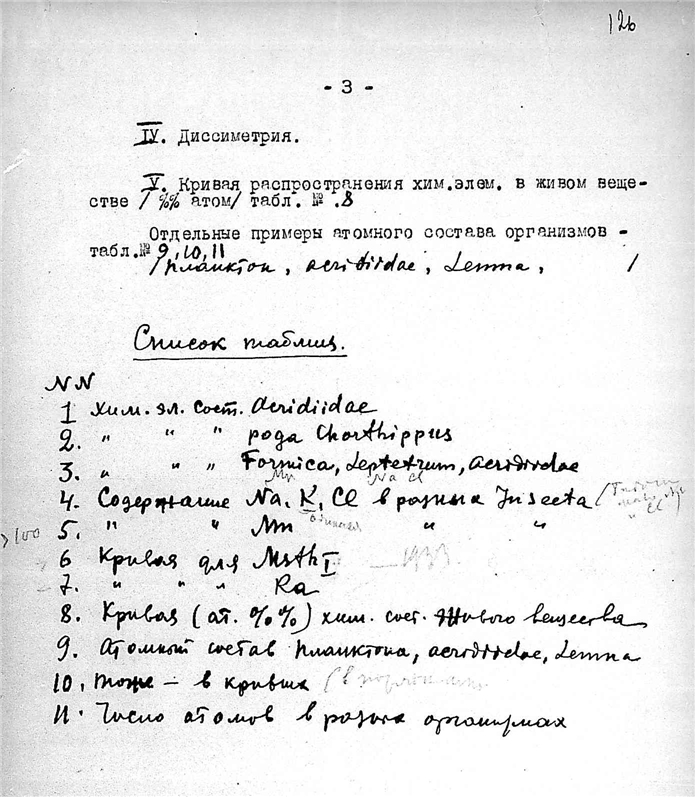 126
- 3 -
IV. Диссиметрия.
V. Кривая распространения хим.элем. в живом веще-
стве / %% атом/ табл. № .8
Отдельные примеры атомного состава организмов -
табл.№ 9, 10, 11
/планктон, acridiidae, Lemna, /
Список таблиц.
NN
1 хим. эл. сост. Acridiidae
2. " " " рода Chorthippus
3. " " " Formica, Leptetrum, acridiidae
Mn Na Cl
4. Содержание Na, K, Cl в разных Insecta (
>100 5. " " Mn " "
6 Кривая для MsTh I — 1933
7. " " " Ra
8. Кривая (ат. %%) хим. сост. живого вещества
9. Атомный состав планктона, acridiidae, Lemna
10. тоже — в кривых (в
11. Число атомов в разных организмах